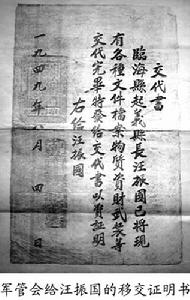 交代書
臨海縣起義縣長汪振國已将現
有各種文件檔案物質資財武装等
交代完畢特發給交代書以資証明
右给汪振國
一九四九年八月四日
军管会给汪振国的移交证明书